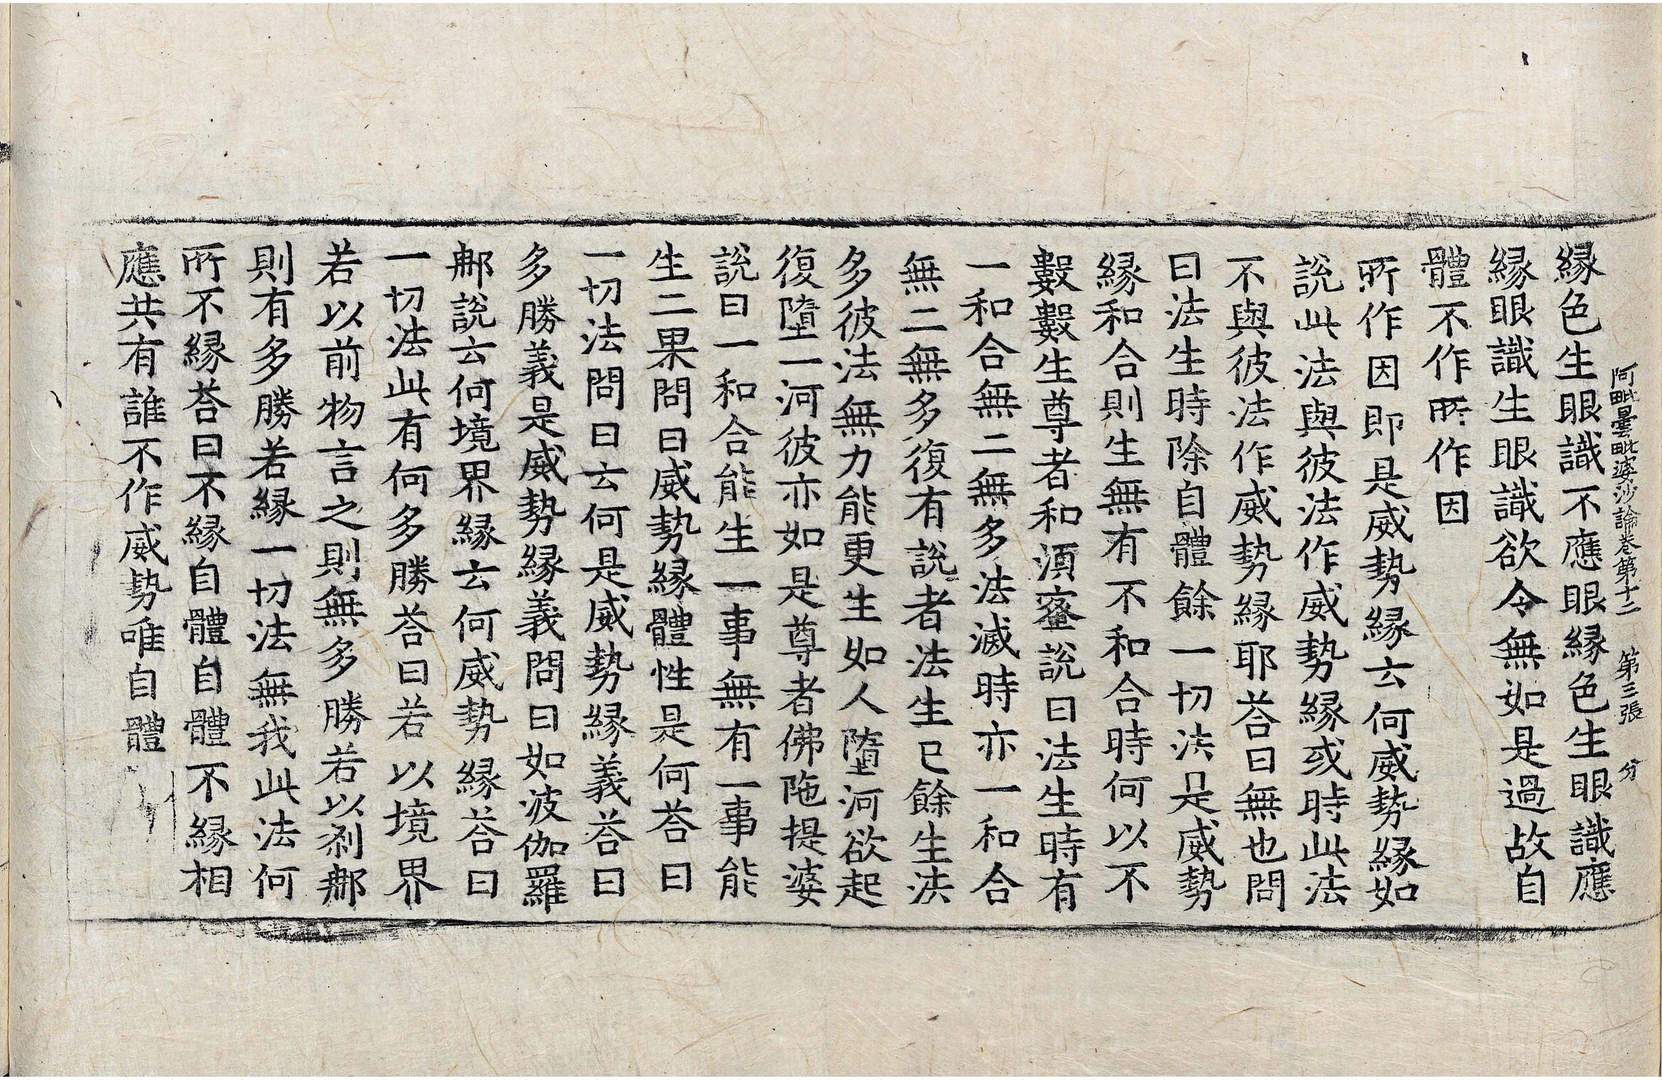 阿毗曇毗婆沙論卷第十二　第三張　分
縁色生眼識不應眼縁色生眼識應
縁眼識生眼識欲令無如是過故自
體不作所作因
所作因即是威勢縁云何威勢縁如
說此法與彼法作威勢縁或時此法
不與彼法作威勢縁耶荅曰無也問
曰法生時除自體餘一切法是威勢
縁和合則生無有不和合時何以不
數數生尊者和須蜜說曰法生時有
一和合無二無多法滅時亦一和合
無二無多復有說者法生已餘生法
多彼法無力能更生如人墮河欲起
復墮一河彼亦如是尊者佛陁提婆
說曰一和合能生一事無有一事能
生二果問曰威勢縁體性是何荅曰
一切法問曰云何是威勢縁義荅曰
多勝義是威勢縁義問曰如波伽羅
𨙻說云何境界縁云何威勢縁荅曰
一切法此有何多勝荅曰若以境界
若以前物言之則無多勝若以刹𨙻
則有多勝若縁一切法無我此法何
所不縁荅曰不縁自體自體不縁相
應共有誰不作威勢唯自體